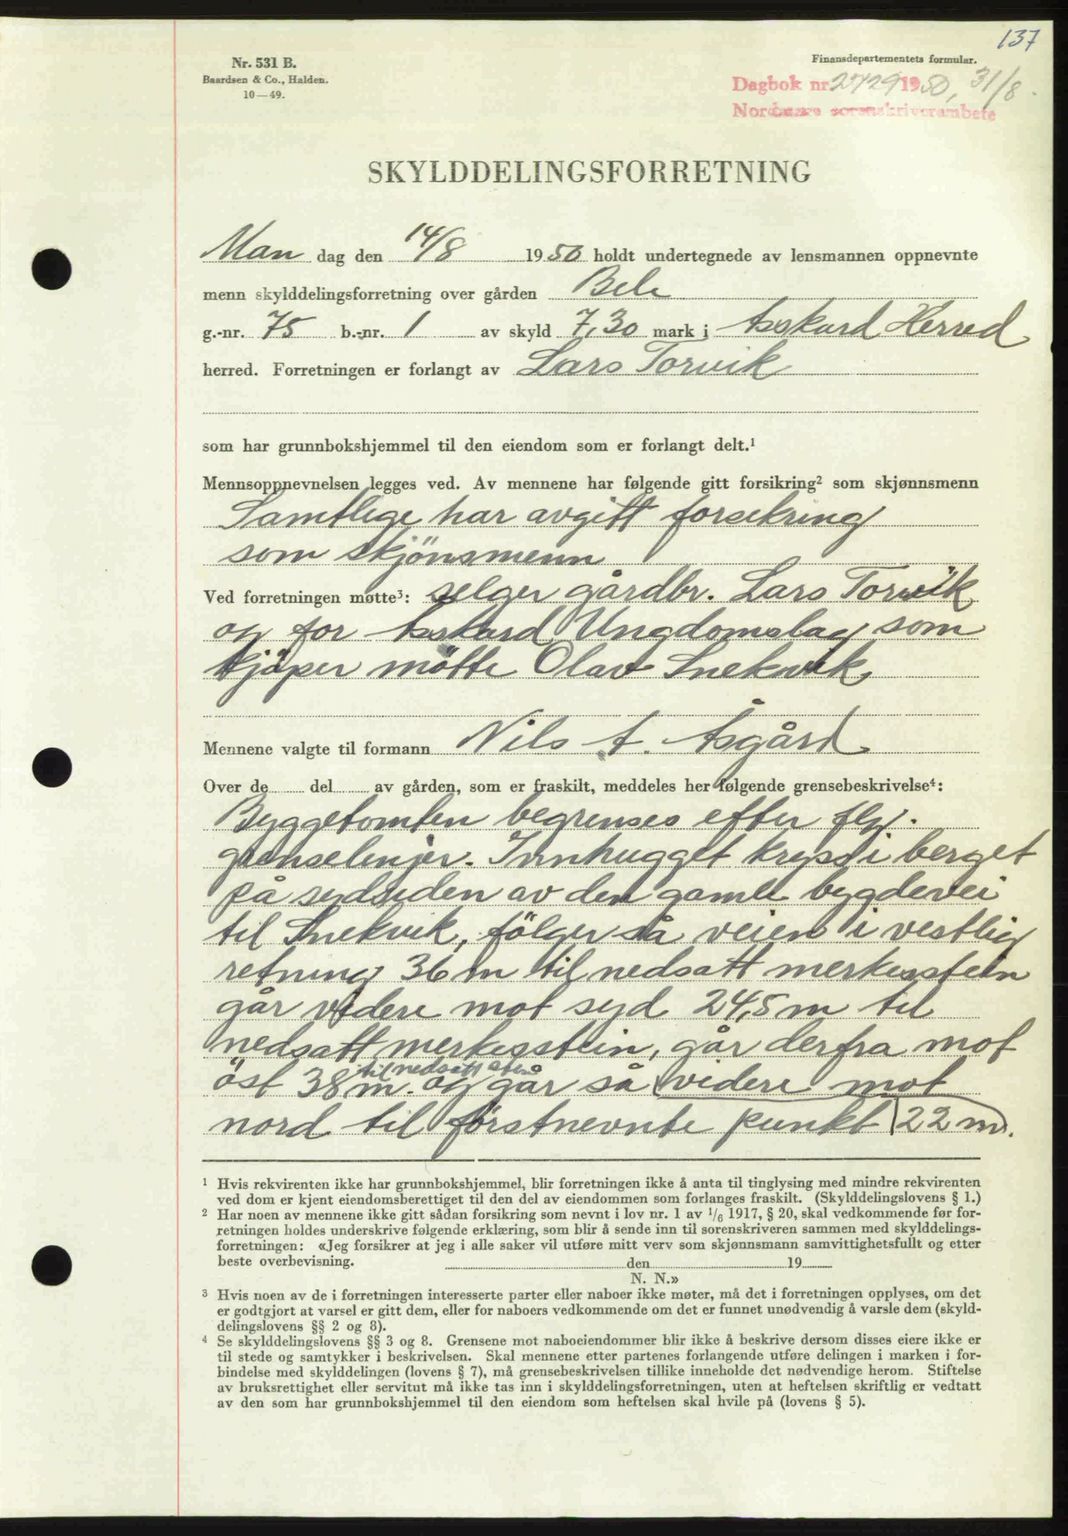 137
Nr. 531 B.
Baardsen & Co., Halden.
10—49.
Finansdepartementets formular.
Dagbok nr. 2729 1950, 31/8.
Nordmøre sorenskriverambete
SKYLDDELINGSFORRETNING
Man dag den 14/8 1950 holdt undertegnede av lensmannen oppnevnte
menn skylddelingsforretning over gården Bele
g.-nr. 75 b.-nr. 1 av skyld 7,30 mark i Asskard Herred
herred. Forretningen er forlangt av Lars Torvik
som har grunnbokshjemmel til den eiendom som er forlangt delt.¹
Mennsoppnevnelsen legges ved. Av mennene har følgende gitt forsikring² som skjønnsmenn
Samtlige har avgitt forsekring
som skjönsmenn
Ved forretningen møtte³: selger gårdbr. Lars Torvik
og for Asskard Ungdomslag som
kjöper mötte Olav Snekvik
Mennene valgte til formann Nils A. Åsgård
Over de del av gården, som er fraskilt, meddeles her følgende grensebeskrivelse⁴:
Byggetomten begrenses efter flg.
grenselinjer. Innhugget kryss i berget
på sydsiden av den gamle bygdevei
til Snekvik, fölger så veien i vestlig
retning 36 m til nedsatt merkesstein
går videre mot syd 24,5 m til
nedsatt merkesstein, går derfra mot
öst 38 m. til nedsatt sten og går så videre mot
nord til førstnevnte punkt 22 m.
¹ Hvis rekvirenten ikke har grunnbokshjemmel, blir forretningen ikke å anta til tinglysing med mindre rekvirenten
ved dom er kjent eiendomsberettiget til den del av eiendommen som forlanges fraskilt. (Skylddelingslovens § 1.)
² Har noen av mennene ikke gitt sådan forsikring som nevnt i lov nr. 1 av 1/6 1917, § 20, skal vedkommende før for-
retningen holdes underskrive følgende erklæring, som blir å sende inn til sorenskriveren sammen med skylddelings-
forretningen: «Jeg forsikrer at jeg i alle saker vil utføre mitt verv som skjønnsmann samvittighetsfullt og etter
beste overbevisning. den 19
N. N.»
³ Hvis noen av de i forretningen interesserte parter eller naboer ikke møter, må det i forretningen opplyses, om det
er godtgjort at varsel er gitt dem, eller for naboers vedkommende om det er funnet unødvendig å varsle dem (skyld-
delingslovens §§ 2 og 8).
⁴ Se skylddelingslovens §§ 3 og 8. Grensene mot naboeiendommer blir ikke å beskrive dersom disses eiere ikke er
til stede og samtykker i beskrivelsen. Skal mennene etter partenes forlangende utføre delingen i marken i for-
bindelse med skylddelingen (lovens § 7), må grensebeskrivelsen tillike inneholde det nødvendige herom. Stiftelse
av bruksrettighet eller servitut må ikke tas inn i skylddelingsforretningen, uten at heftelsen skriftlig er vedtatt
av den som har grunnbokshjemmel til den eiendom som heftelsen skal hvile på (lovens § 5).